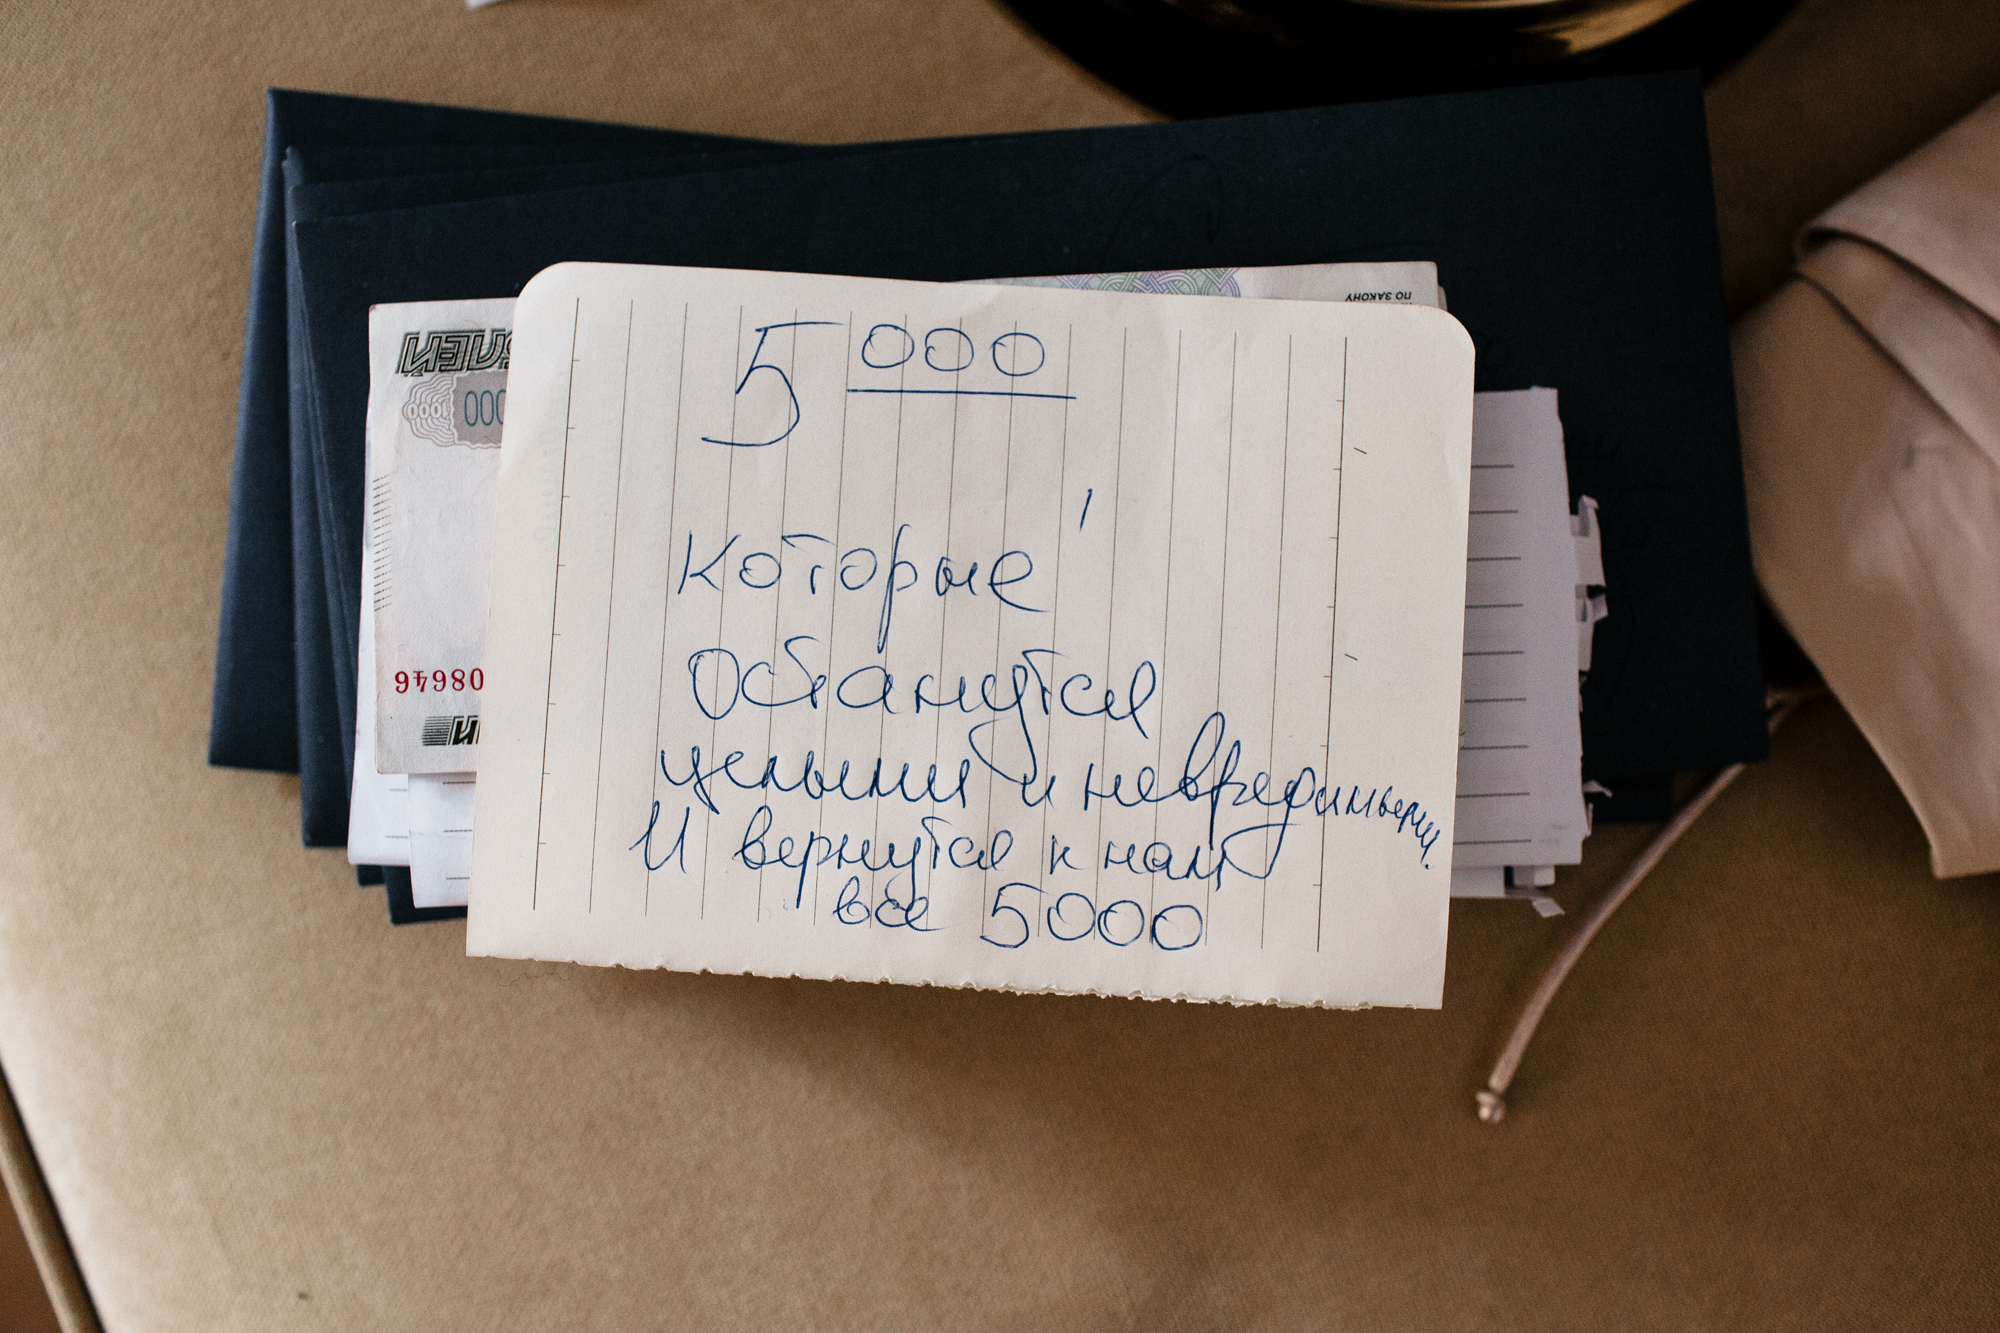 ПО ЗАКОНУ
БЛЕЙ
1000
000
5000
которые
останутся
целыми и невредимыми.
И вернутся к нам
все 5000
08646